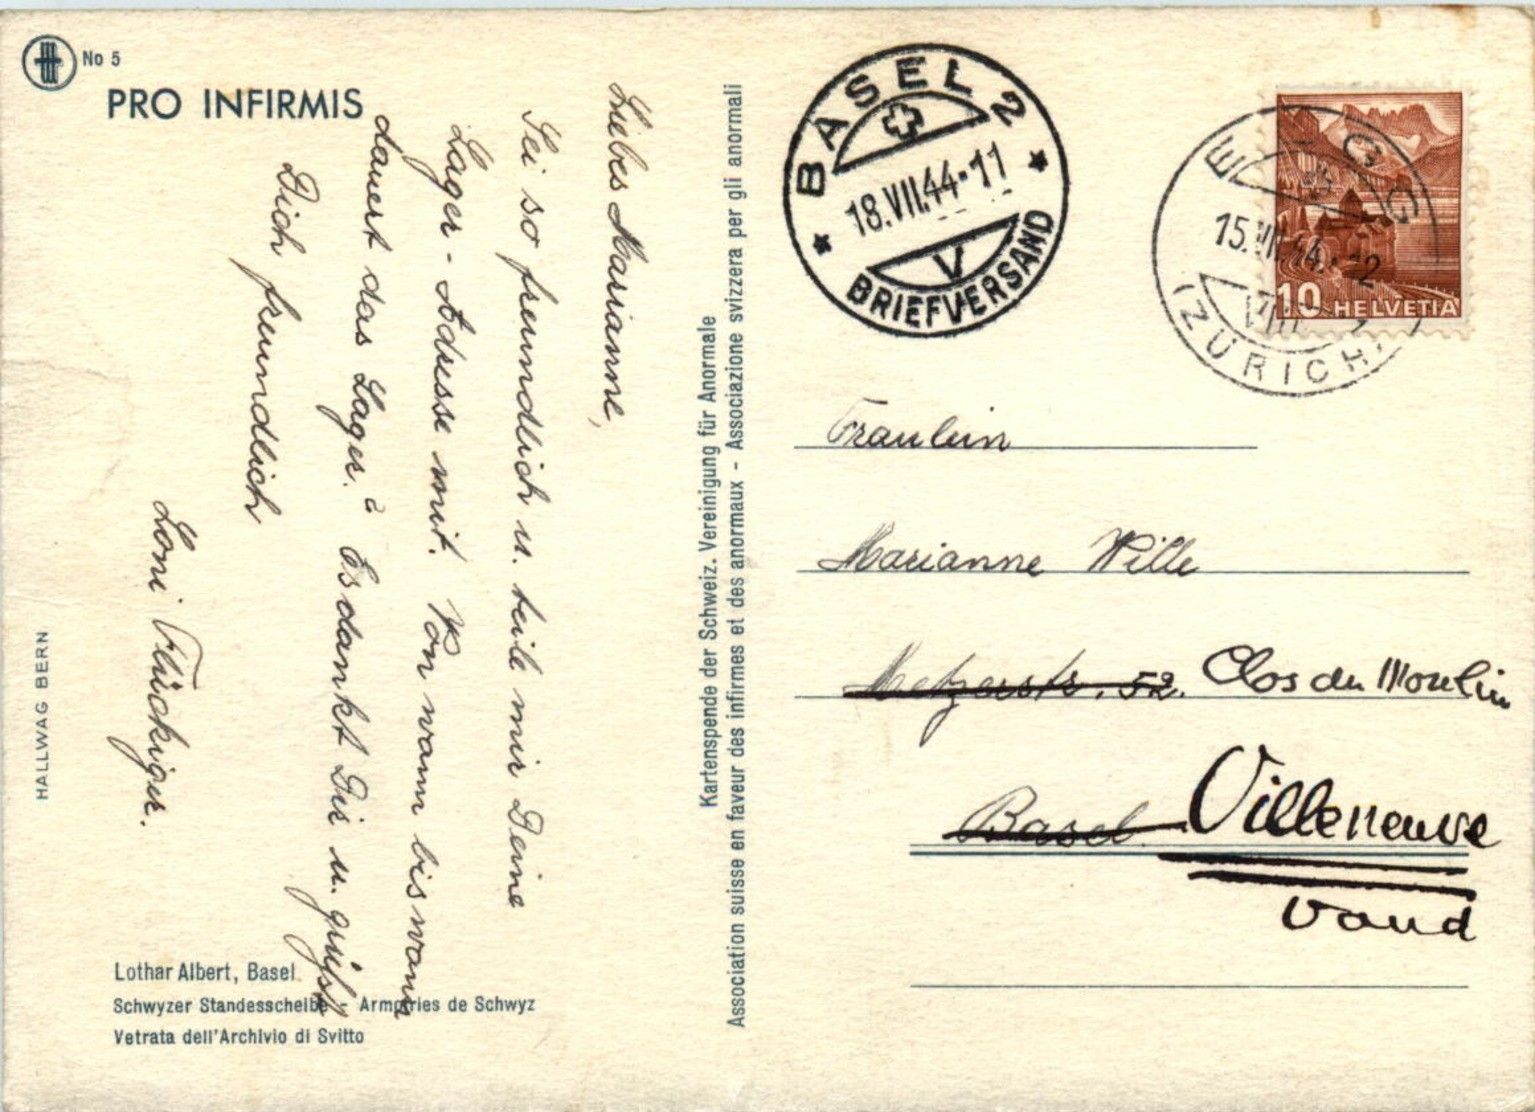 No 5
PRO INFIRMIS
Liebes Marianne,
Sei so freundlich u. teile mir Deine
Lager-Adresse mit. Von wann bis wann
dauert das Lager? Es dankt Dir u. grüsst
Dich freundlich
Loni Flückiger.
HALLWAG BERN
Lothar Albert, Basel
Schwyzer Standesscheibe - Armoiries de Schwyz
Vetrata dell'Archivio di Svitto
Kartenspende der Schweiz. Vereinigung für Anormale
Association suisse en faveur des infirmes et des anormaux - Associazione svizzera per gli anormali
BASEL 2
18.VII.44-11
V
BRIEFVERSAND
EGG
15.VII.44.-12
(ZÜRICH)
10 HELVETIA
Fräulein
Marianne Wille
Metzerstr. 52. Clos du Moulin
Basel. Villeneuve
Vaud